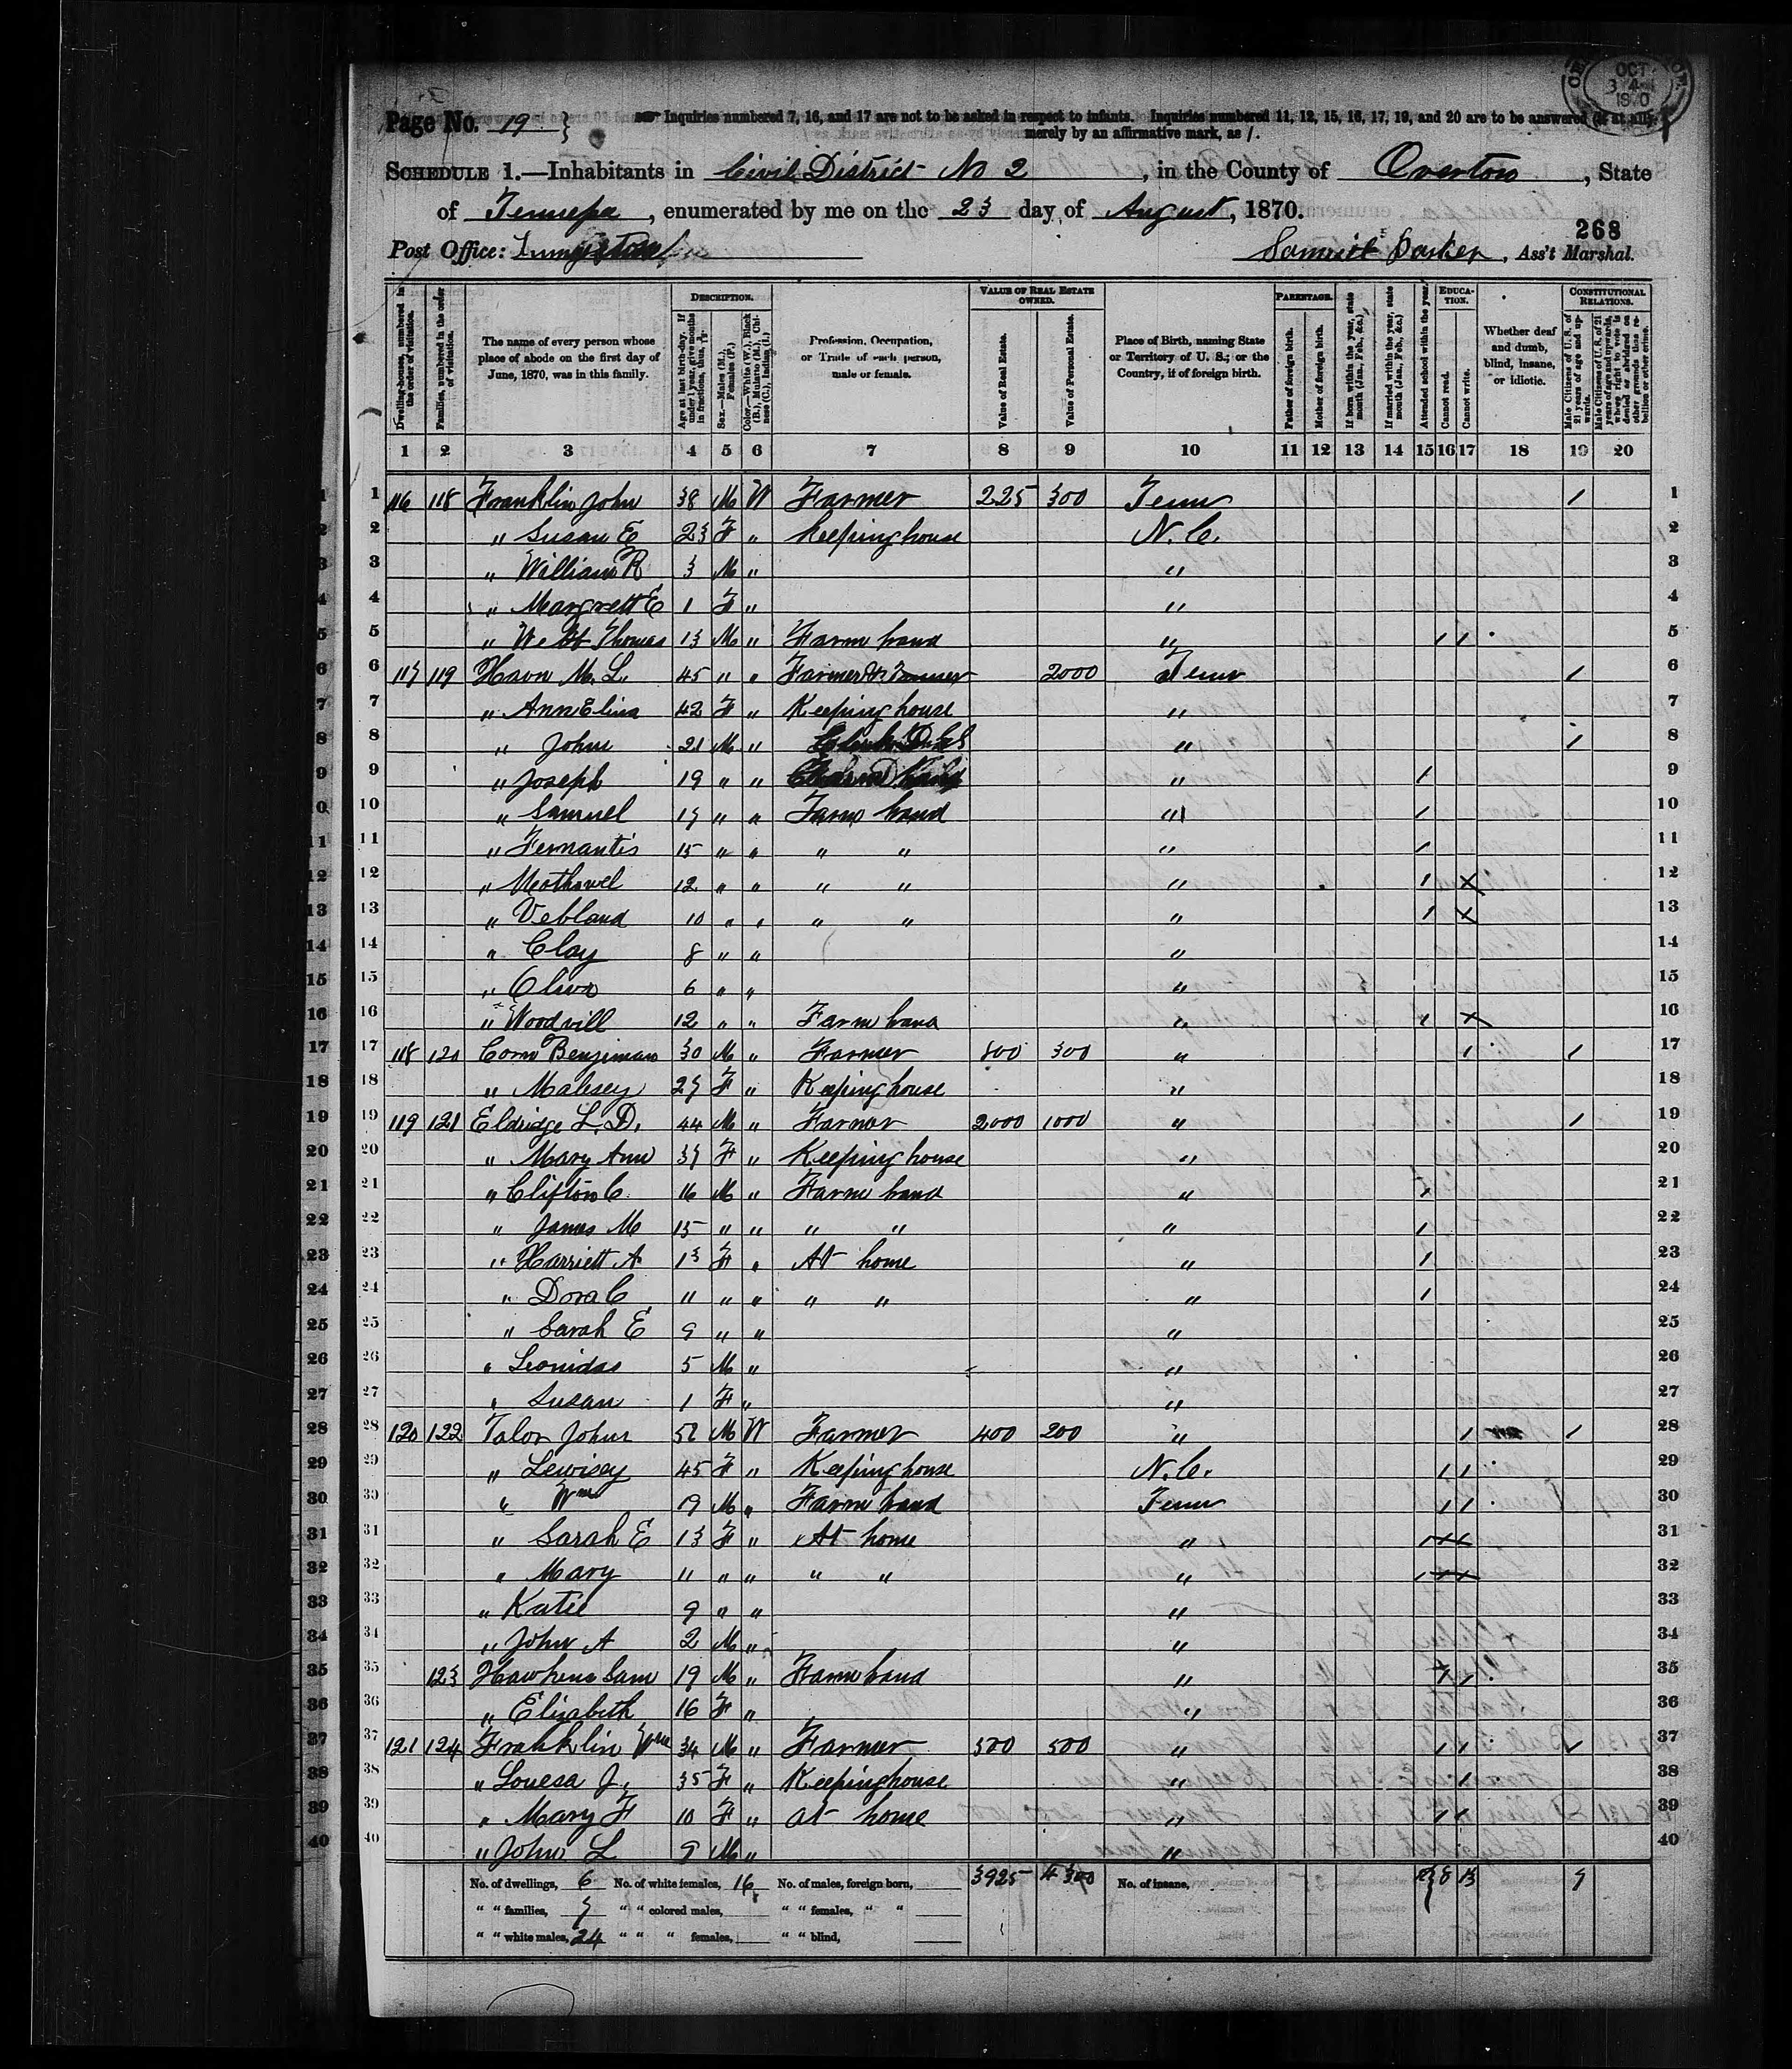 OCT 3 1870
Page No. 19
Inquiries numbered 7, 16, and 17 are not to be asked in respect to infants. Inquiries numbered 11, 12, 15, 16, 17, 19, and 20 are to be answered (if at all)
merely by an affirmative mark, as /.
SCHEDULE 1.—Inhabitants in Civil District No 2, in the County of Overton, State
of Tennessee, enumerated by me on the 23 day of August, 1870.
268
Post Office: Ass't Marshal.
DESCRIPTION. VALUE OF REAL ESTATE OWNED. PARENTAGE. EDUCATION. CONSTITUTIONAL RELATIONS.
Dwelling-houses, numbered in the order of visitation.
Families, numbered in the order of visitation.
The name of every person whose place of abode on the first day of June, 1870, was in this family.
Age at last birth-day. If under 1 year, give months in fractions, thus, 3/12.
Sex.—Males (M.), Females (F.)
Color.—White (W.), Black (B.), Mulatto (M.), Chinese (C.), Indian (I.)
Profession, Occupation, or Trade of each person, male or female.
Value of Real Estate.
Value of Personal Estate.
Place of Birth, naming State or Territory of U. S.; or the Country, if of foreign birth.
Father of foreign birth.
Mother of foreign birth.
If born within the year, state month (Jan., Feb., &c.)
If married within the year, state month (Jan., Feb., &c.)
Attended school within the year.
Cannot read.
Cannot write.
Whether deaf and dumb, blind, insane, or idiotic.
Male Citizens of U. S. of 21 years of age and upwards.
Male Citizens of U. S. of 21 years of age and upwards, whose right to vote is denied or abridged on other grounds than rebellion or other crime.
1 2 3 4 5 6 7 8 9 10 11 12 13 14 15 16 17 18 19 20
1 116 118 Franklin John 38 M W Farmer 225 300 Tenn / 1
2 " Susan E 23 F " Keeping house N. C. 2
3 " William R 3 M " " 3
4 " Margrett E 1 F " " 4
5 " Webb Thomas 13 M " Farm hand " / / 5
6 117 119 M. L. 45 " " Farmer & Tanner 2000 Tenn / 6
7 " Ann Eliza 42 F " Keeping house " 7
8 " John 21 M " " / 8
9 " Joseph 19 " " " / 9
10 " Samuel 17 " " Farm hand " / 10
11 " Fernantis 15 " " " " " / 11
12 " 12 " " " " " / X 12
13 " 10 " " " " " / X 13
14 " Clay 8 " " " 14
15 " 6 " " " 15
16 " Woodvill 12 " " Farm hand " / X 16
17 118 120 Corn Benjiman 30 M " Farmer 800 300 " / / 17
18 " Malesey 27 F " Keeping house " 18
19 119 121 Eldridge L. D. 44 M " Farmer 2000 1000 " / 19
20 " Mary Ann 37 F " Keeping house " 20
21 " Clifton C. 16 M " Farm hand " / 21
22 " James M 15 " " " " " / 22
23 " Harriett A 13 F " At home " / 23
24 " Dora C 11 " " " " " / 24
25 " Sarah E 9 " " " 25
26 " Leonidas 5 M " " 26
27 " Susan 1 F " " 27
28 120 122 Talor John 52 M W Farmer 400 200 " / / 28
29 " Lewisey 45 F " Keeping house N. C. / / 29
30 " Wm 19 M " Farm hand Tenn / / 30
31 " Sarah E 13 F " At home " / X X 31
32 " Mary 11 " " " " " / X X 32
33 " Katie 9 " " " 33
34 " John A 2 M " " 34
35 123 Hawkins Sam 19 M " Farm hand " / / 35
36 " Elizabeth 16 F " " 36
37 121 124 Franklin Wm 34 M " Farmer 500 500 " / / / 37
38 " Louesa J. 35 F " Keeping house " / 38
39 " Mary F 10 F " at home " / / 39
40 " John L 9 M " " 40
No. of dwellings, 6 No. of white females, 16 No. of males, foreign born, 3925 4300 No. of insane, 8 13 9
" " families, 7 " " colored males, " " females, " "
" " white males, 24 " " " females, " " blind,